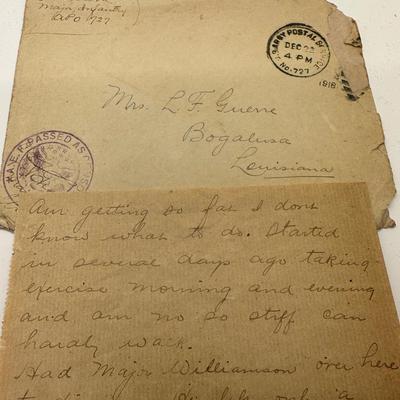 Major, Infantry
APO 727
U.S. ARMY POSTAL SERVICE
DEC 23
4 PM
No. 727
1918
Mrs. L. F. Guerre
Bogalusa
Louisiana
A.E.F. PASSED AS CENSORED
Am getting so fat I dont
know what to do. Started
in several days ago taking
exercise morning and evening
and am no so stiff can
hardly walk.
Had Major Williamson over here
to